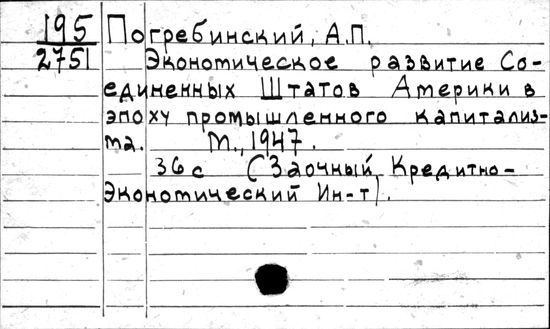 195 Погребинский, А.П.
2751 Экономическое развитие Со-
единенных Штатов Америки в
эпоху промышленного капитализ-
ма. М., 1947.
36 с (Заочный Кредитно-
Экономический Ин-т).